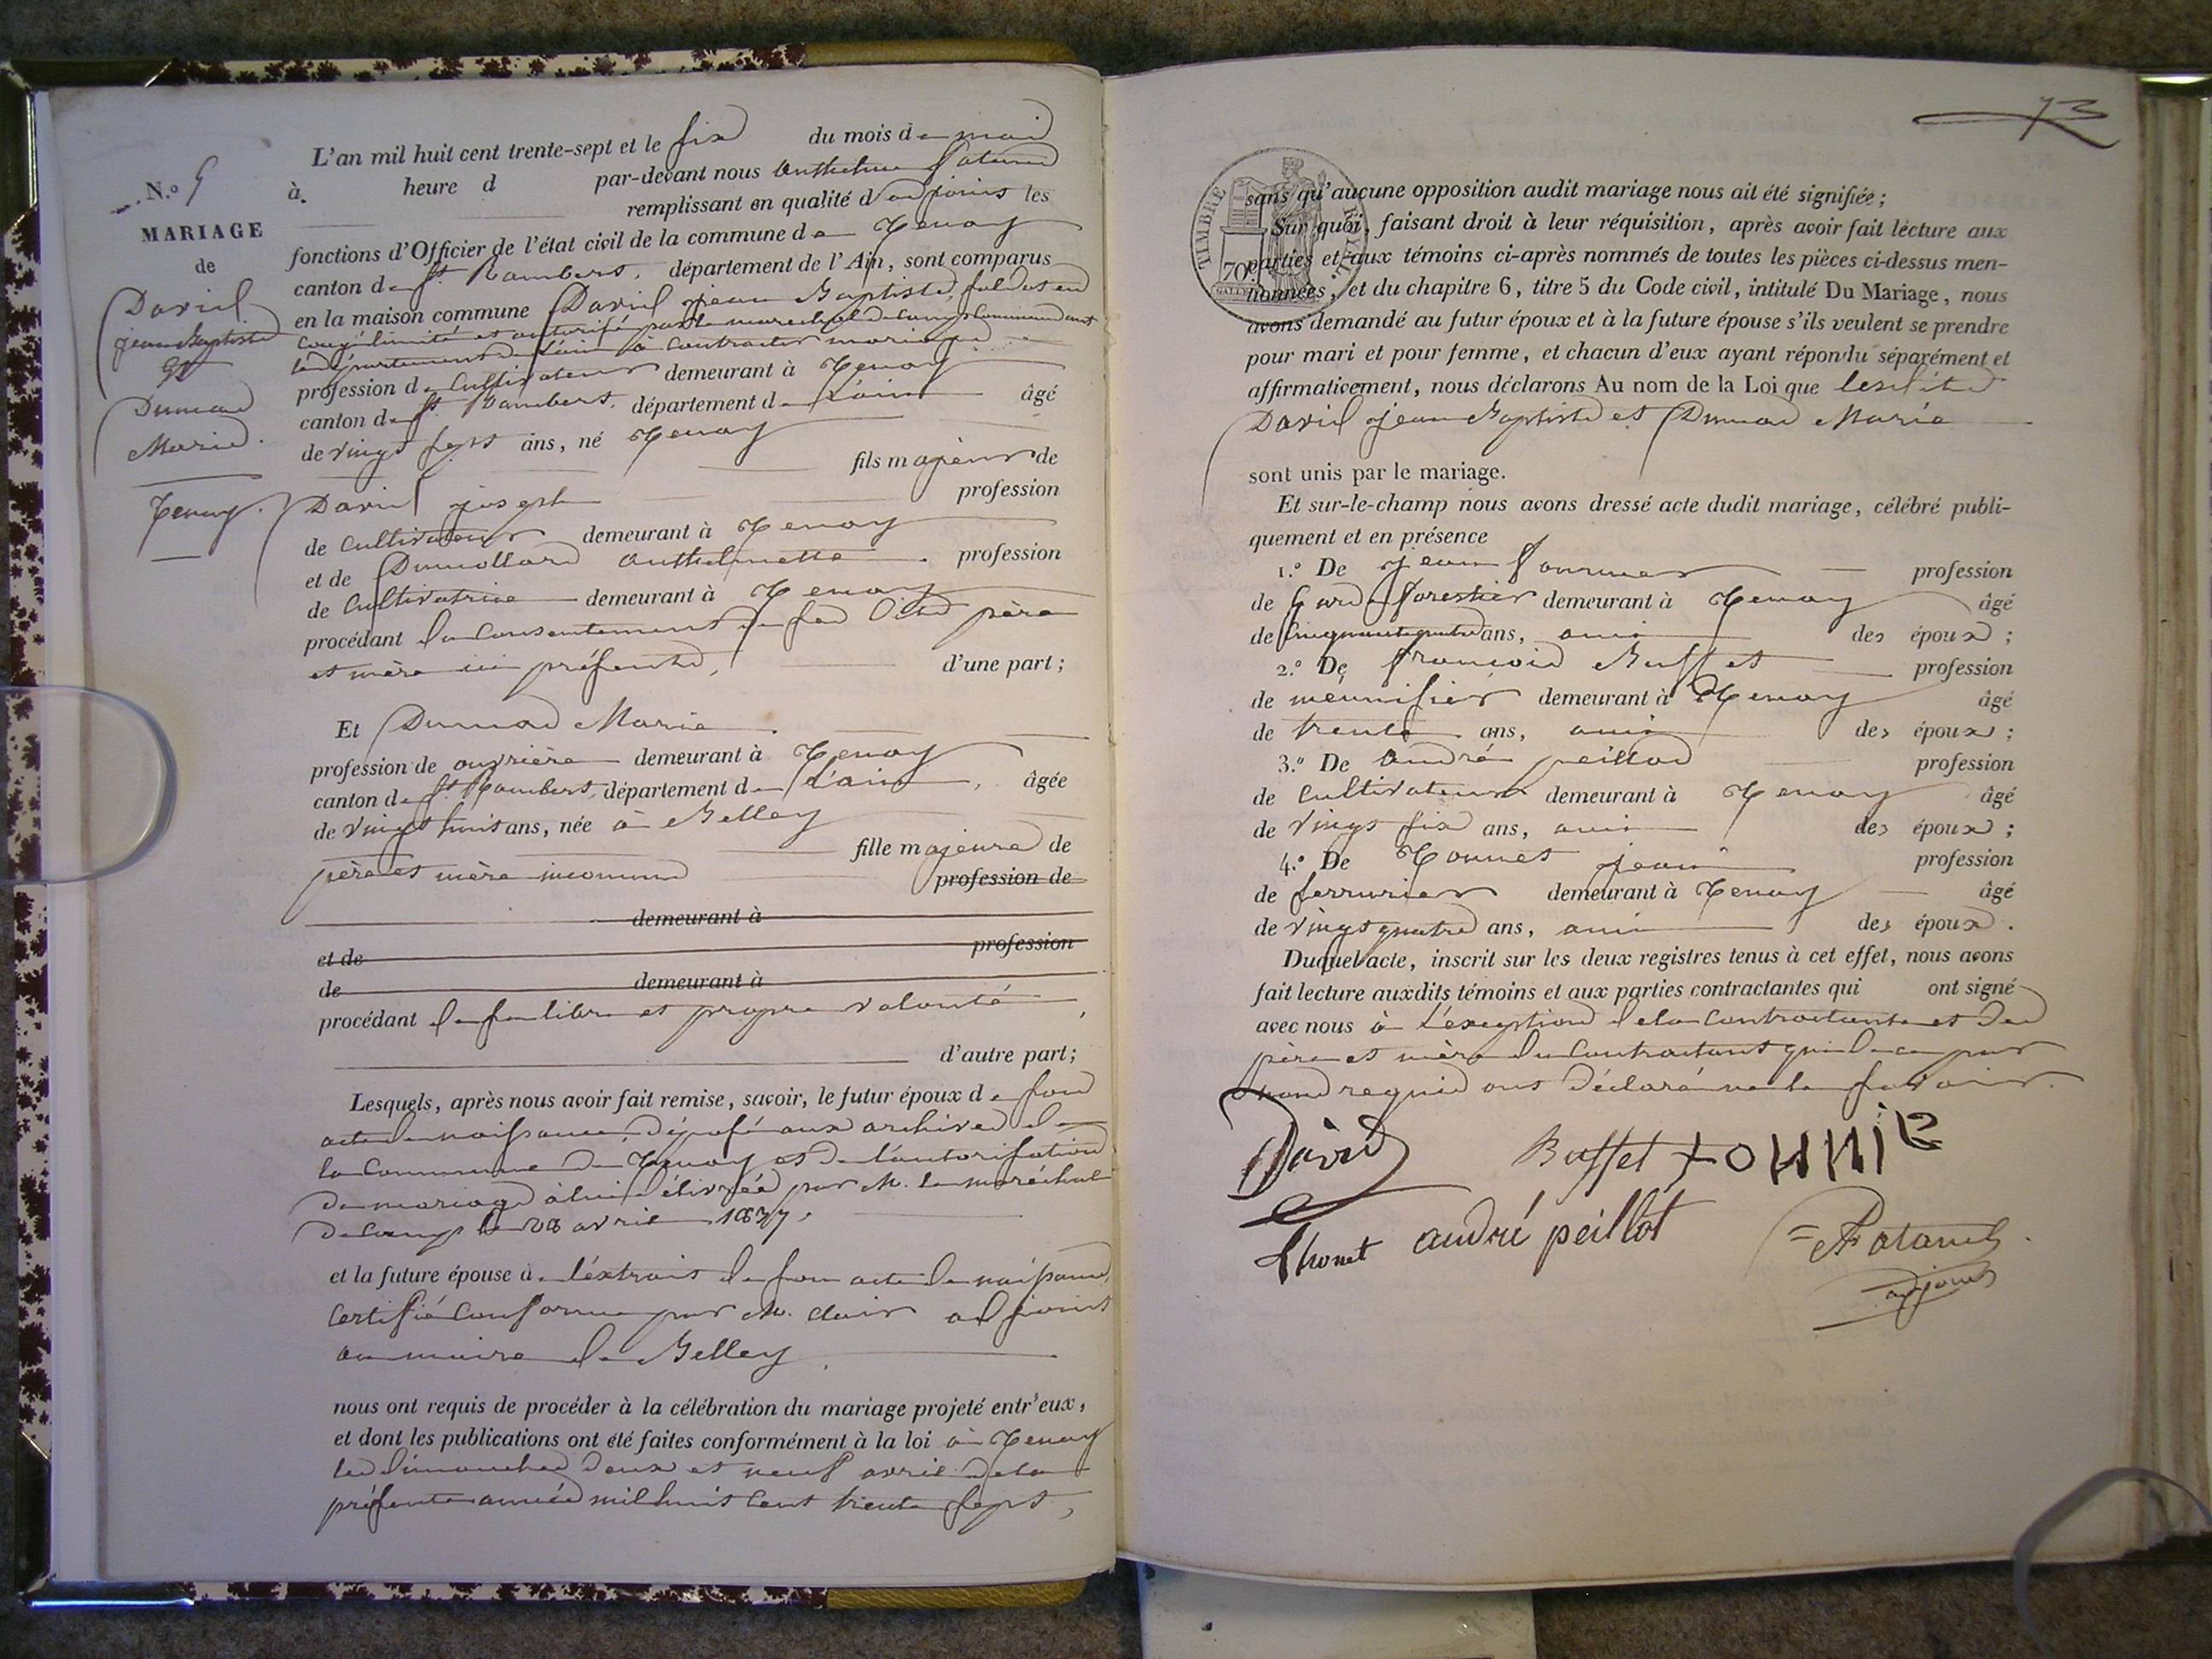 N.º 5
MARIAGE
de
David
jean Baptiste
et
Dumas
Marie.
Tenay.
L'an mil huit cent trente-sept et le six du mois de mai
à heure d par-devant nous Anthelme
remplissant en qualité d'adjoint les
fonctions d'Officier de l'état civil de la commune de Tenay
canton de St. Rambert, département de l'Ain, sont comparus
en la maison commune David jean Baptiste, soldat en
congé illimité et autorisé par le marechal de camp Commandant
le département de l'ain à contracter mariage
profession de Cultivateur demeurant à Tenay
canton de St. Rambert, département de L'ain âgé
de vingt sept ans, né Tenay
fils majeur de
David joseph profession
de Cultivateur demeurant à Tenay
et de Dumollard Anthelmette profession
de Cultivatrice demeurant à Tenay
procédant du Consentement de ses dits père
et mère ici présents, d'une part;
Et Dumas Marie
profession de ouvrière demeurant à Tenay
canton de St. Rambert, département de L'ain, âgée
de vingt huit ans, née à Belley
fille majeure de
père et mère inconnus profession de
demeurant à
et de profession
de demeurant à
procédant de sa libre et propre volonté,
d'autre part;
Lesquels, après nous avoir fait remise, savoir, le futur époux de son
acte de naissance, déposé aux archives de
la Commune de Tenay et de l'autorisation
de mariage à lui délivrée par M. le maréchal
de Camp le 28 avril 1837,
et la future épouse de l'extrait de son acte de naissance,
Certifié Conforme par M. Clair adjoint
au maire de Belley,
nous ont requis de procéder à la célébration du mariage projeté entr'eux,
et dont les publications ont été faites conformément à la loi à Tenay
les dimanches deux et neuf avril de la
présente année mil huit cent trente sept,
73
TIMBRE ROYAL
70
sans qu'aucune opposition audit mariage nous ait été signifiée;
Sur quoi, faisant droit à leur réquisition, après avoir fait lecture aux
parties et aux témoins ci-après nommés de toutes les pièces ci-dessus men-
tionnées, et du chapitre 6, titre 5 du Code civil, intitulé Du Mariage, nous
avons demandé au futur époux et à la future épouse s'ils veulent se prendre
pour mari et pour femme, et chacun d'eux ayant répondu séparément et
affirmativement, nous déclarons Au nom de la Loi que lesdits
David jean Baptiste et Dumas Marie
sont unis par le mariage.
Et sur-le-champ nous avons dressé acte dudit mariage, célébré publi-
quement et en présence
1.º De jean profession
de Garde forestier demeurant à Tenay âgé
de Cinquante quatre ans, ami des époux;
2.º De françois Buffet profession
de menuisier demeurant à Tenay âgé
de trente ans, ami des époux;
3.º De André peillod profession
de Cultivateur demeurant à Tenay âgé
de vingt six ans, ami des époux;
4.º De jean profession
de serrurier demeurant à Tenay âgé
de vingt quatre ans, ami des époux.
Duquel acte, inscrit sur les deux registres tenus à cet effet, nous avons
fait lecture auxdits témoins et aux parties contractantes qui ont signé
avec nous à L'exception de la Contractante et des
père et mère du Contractant qui de ce par
nous requis ont déclaré ne le savoir.
David Buffet
andré peillot
adjoint